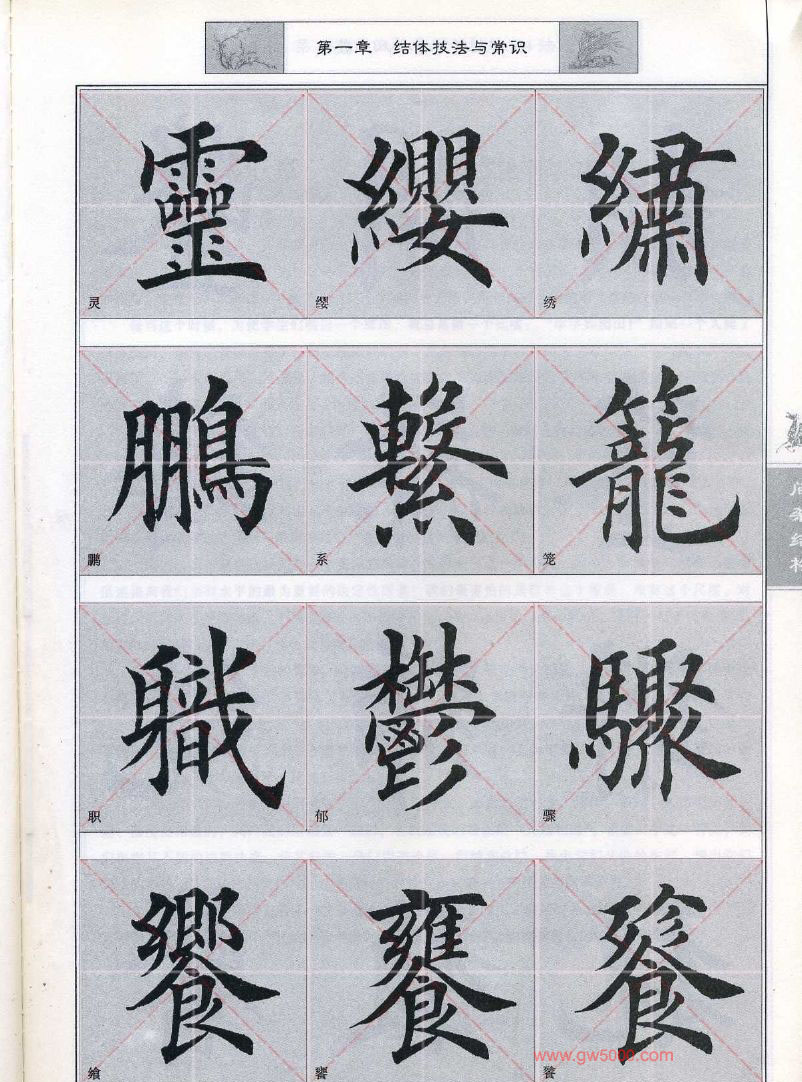 第一章 结体技法与常识
靈 纓 繡
灵 缨 绣
鵬 繫 籠
鹏 系 笼
職 鬱 驟
职 郁 骤
饗 饔 餮
飨 饔 餮
www.gw5000.com
结
构